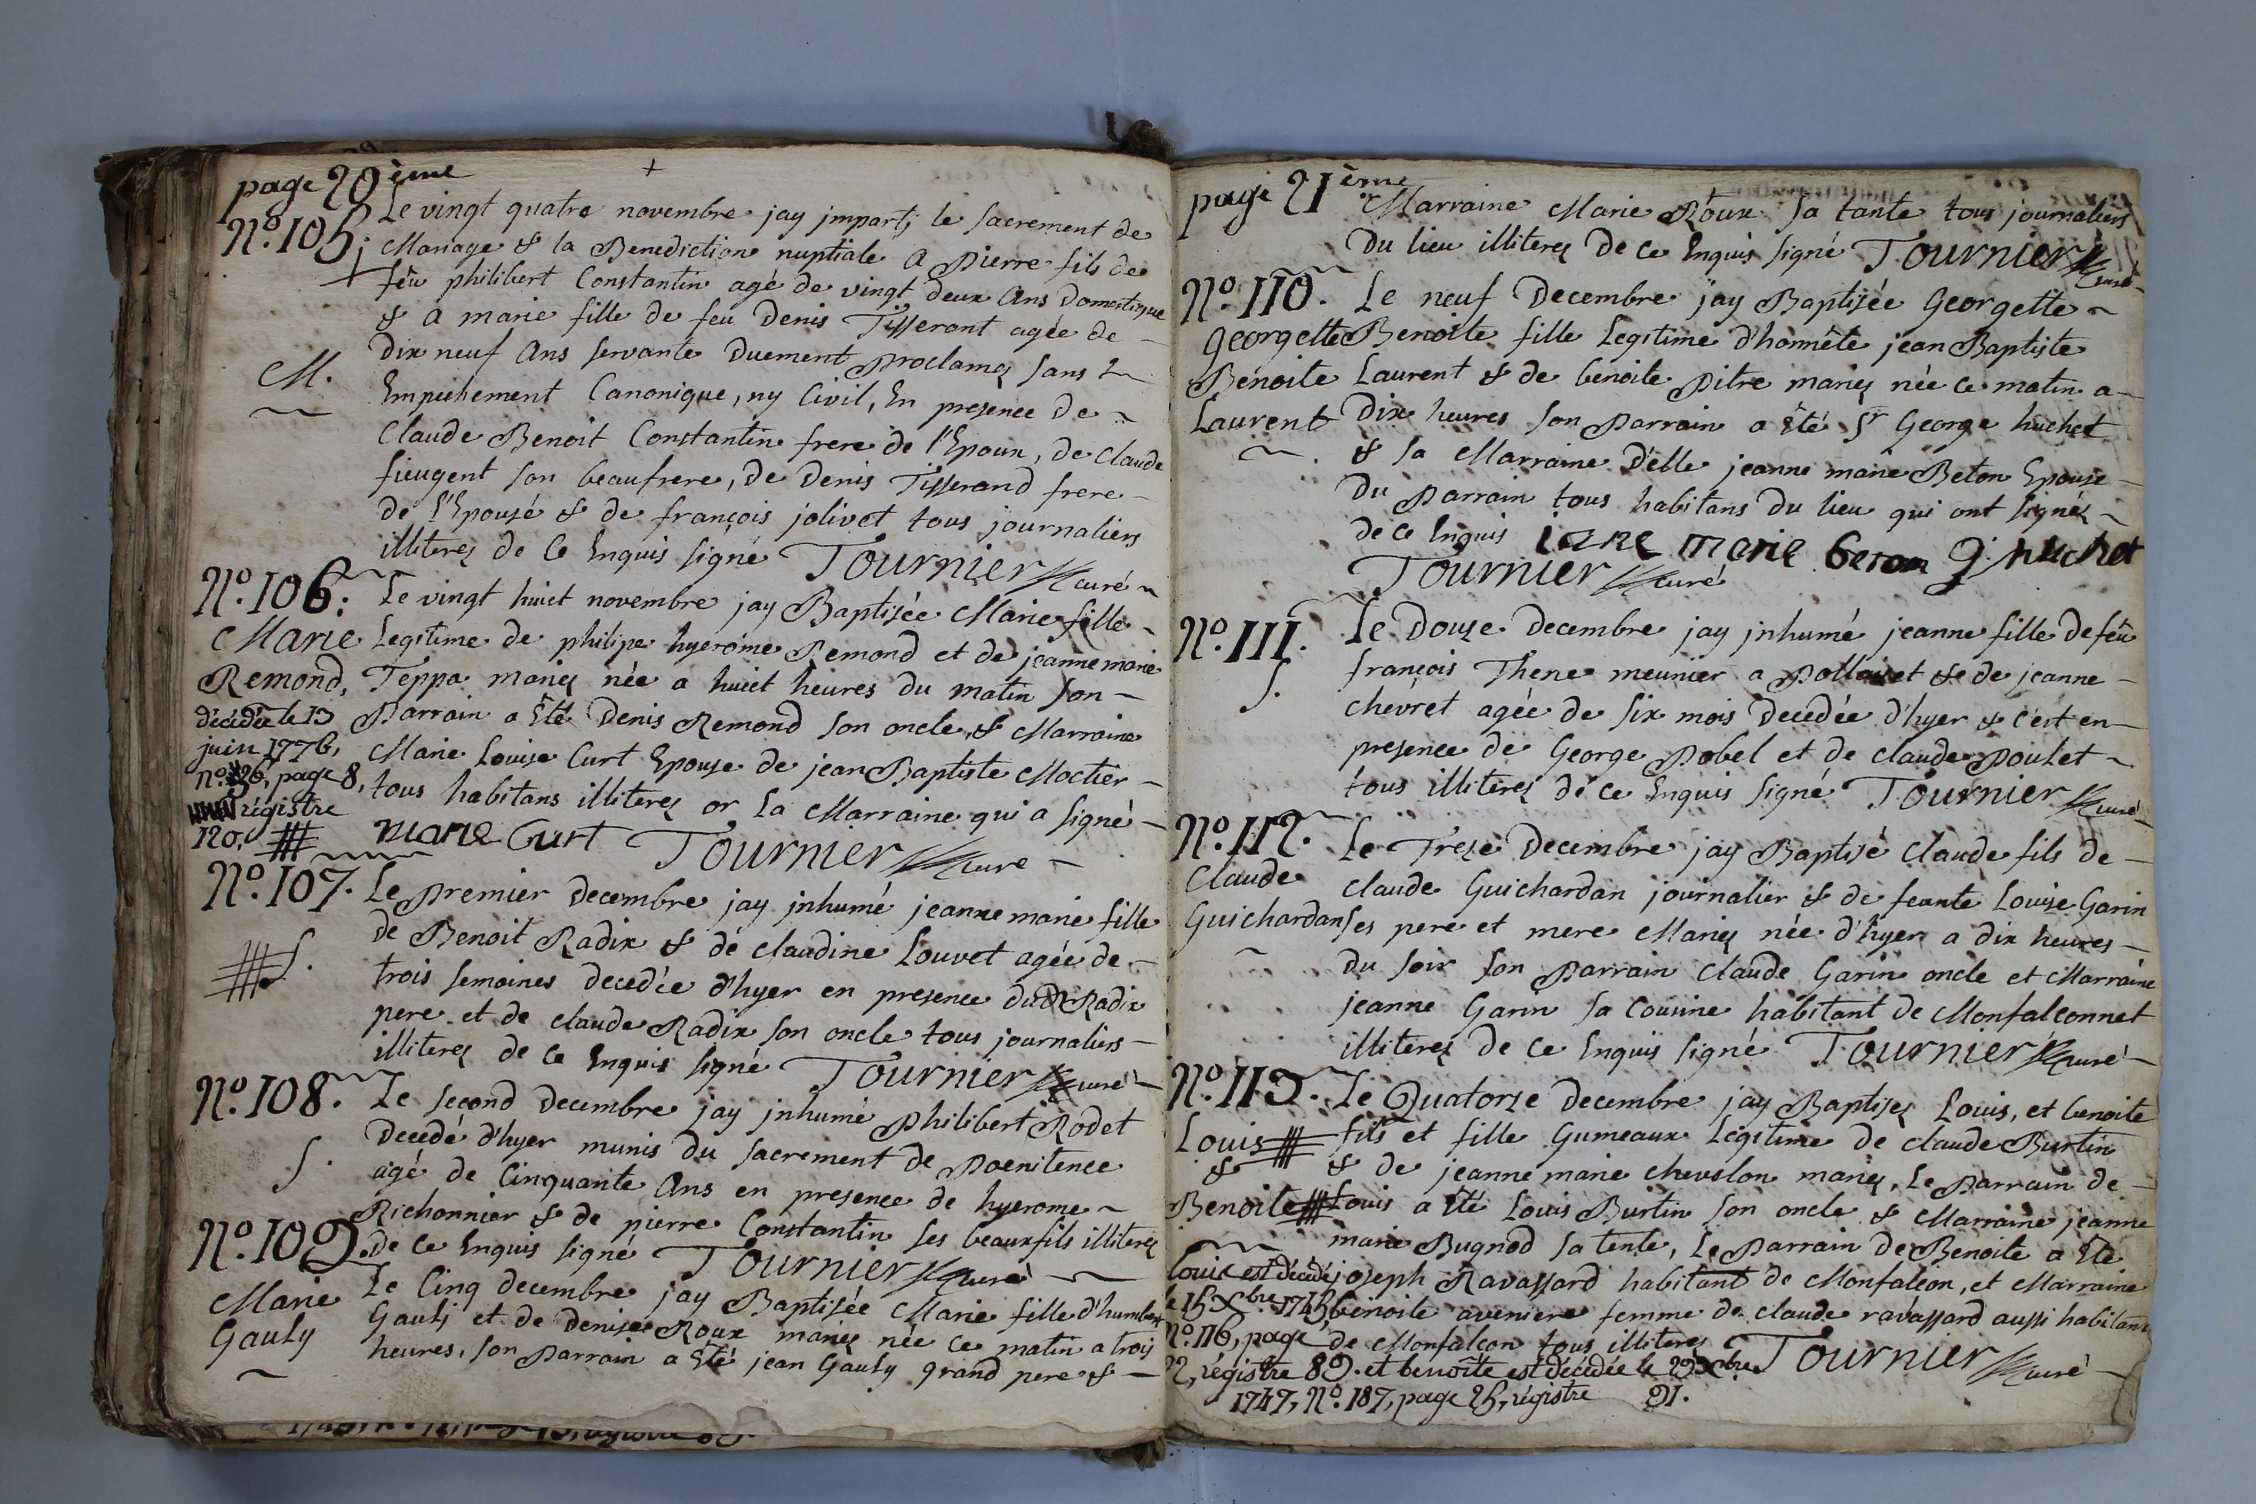 page 20ème
N.º 105.
Le vingt quatre novembre jay jmparti le sacrement de
Mariage & la Benediction nuptiale a Pierre fils de
feu philibert Constantin agé de vingt deux Ans Domestique
& a marie fille de feu Denis Tisserant agée de
dix neuf Ans servante Duement Proclamez sans
M.
Empechement Canonique, ny Civil, En presence de
Claude Benoit Constantin frere de l'Epoux, de Claude
fieugent son beaufrere, de Denis Tisserand frere
de l'Epousé & de françois jolivet tous journaliers
illiterez de Ce Enquis signé Tournier curé
N.º 106.
Marie
Remond,
décédée le 13
juin 1776,
page 8,
régistre
120.
Le vingt huict novembre jay Baptisée Marie fille
Legitime de philipe hyerôme Remond et de jeanne marie
Teppa mariez née a huict heures du matin son
Parrain a Eté Denis Remond son oncle, & Marraine
Marie Louise Curt Epouse de jean Baptiste Moctier
tous habitans illiterez or la Marraine qui a signé
marie Curt Tournier cure
N.º 107.
S.
Le Premier Decembre jay jnhumé jeanne marie fille
de Benoit Radix & de claudine Louvet agée de
trois semaines decedée d'hyer en presence dud Radix
pere et de claude Radix son oncle tous journaliers
illiterez de Ce Enquis signé Tournier curé
N.º 108.
S.
Le second Decembre jay jnhumé Philibert Rodet
Decedé d'hyer munis du sacrement de Poenitence
agé de Cinquante Ans en presence de hyerome
Richonnier & de pierre Constantin ses beauxfils illiterez
de Ce Enquis signé Tournier curé
N.º 109.
Marie
Gauly
Le Cinq decembre jay Baptisée Marie fille d'humbert
Gauly et de Denise Roux mariez née Ce matin a trois
heures, son Parrain a Eté jean Gauly grand pere &
page 21ème
Marraine Marie Roux sa tante tous journaliers
Du lieu illiterez De Ce Enquis signé Tournier curé
N.º 110.
Georgette
Benoite
Laurent
Le neuf Decembre jay Baptisée Georgette
Benoite fille Legitime d'honnête jean Baptiste
Laurent & de benoite Pitre mariez née Ce matin a
Dix heures son Parrain a Eté Sr George huchet
& sa Marraine D'elle jeanne marie Beton Epouse
Du Parrain tous habitans Du lieu qui ont signéz
de Ce Enquis iane marie beton g. huchet
Tournier curé
N.º 111.
S.
Le Douze Decembre jay jnhumé jeanne fille de feu
françois Thene meunier a Pollaiset & de jeanne
chevret agée de six mois Decedée d'hyer & c'est en
presence de George Pobel et de claude Poulet
tous illiterez de Ce Enquis signé Tournier curé
N.º 112.
Claude
Guichardan
Le Treze Decembre jay Baptisé Claude fils de
claude Guichardan journalier & de feante Louise Garin
ses pere et mere Mariez née d'hyer a dix heures
du soir son Parrain Claude Garin oncle et Marraine
jeanne Garin sa Cousine habitant de Monfalconnet
illiterez De Ce Enquis signé Tournier curé
N.º 113.
Louis
&
Benoite
Le Quatorze Decembre jay Baptisez Louis, et benoite
fils et fille Gumeaux Legitime de claude Burtin
& de jeanne marie chevslon mariez, Le Parrain de
Louis a Eté Louis Burtin son oncle & Marraine jeanne
marie Bugnod sa tente, Le Parrain de Benoite a Eté
joseph Ravassard habitant de Monfalcon, et Marraine
benoite aveniere femme de claude ravassard aussi habitant
de Monfalcon tous illiterez Tournier curé
Louis est décédé
le 15 Xbre 1745,
N.º 116, page
22, régistre 89. et benoîte est décédée le 29 Xbre
1747, N.º 187, page 25, régistre 91.